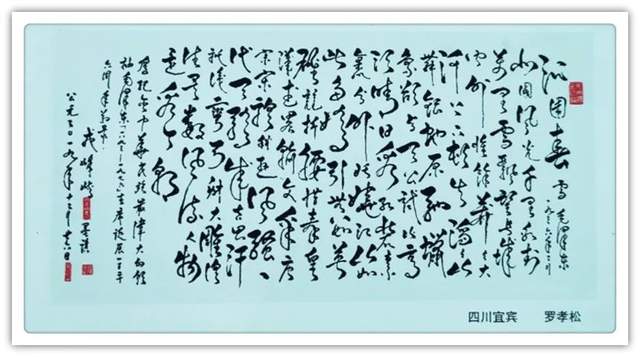 沁园春 雪 毛泽东 一九三六年二月
北国风光千里冰封
万里雪飘望长城
内外惟余莽莽大
河上下顿失滔滔山
舞银蛇原驰蜡
象欲与天公试比高
须晴日看红装素
裹分外妖娆江山如
此多娇引无数英
雄竞折腰惜秦皇
汉武略输文采唐
宗宋祖稍逊风骚一
代天骄成吉思汗
只识弯弓射大雕俱
往矣数风流人物
还看今朝
公元二〇一九年十二月廿六日
四川宜宾 罗孝松